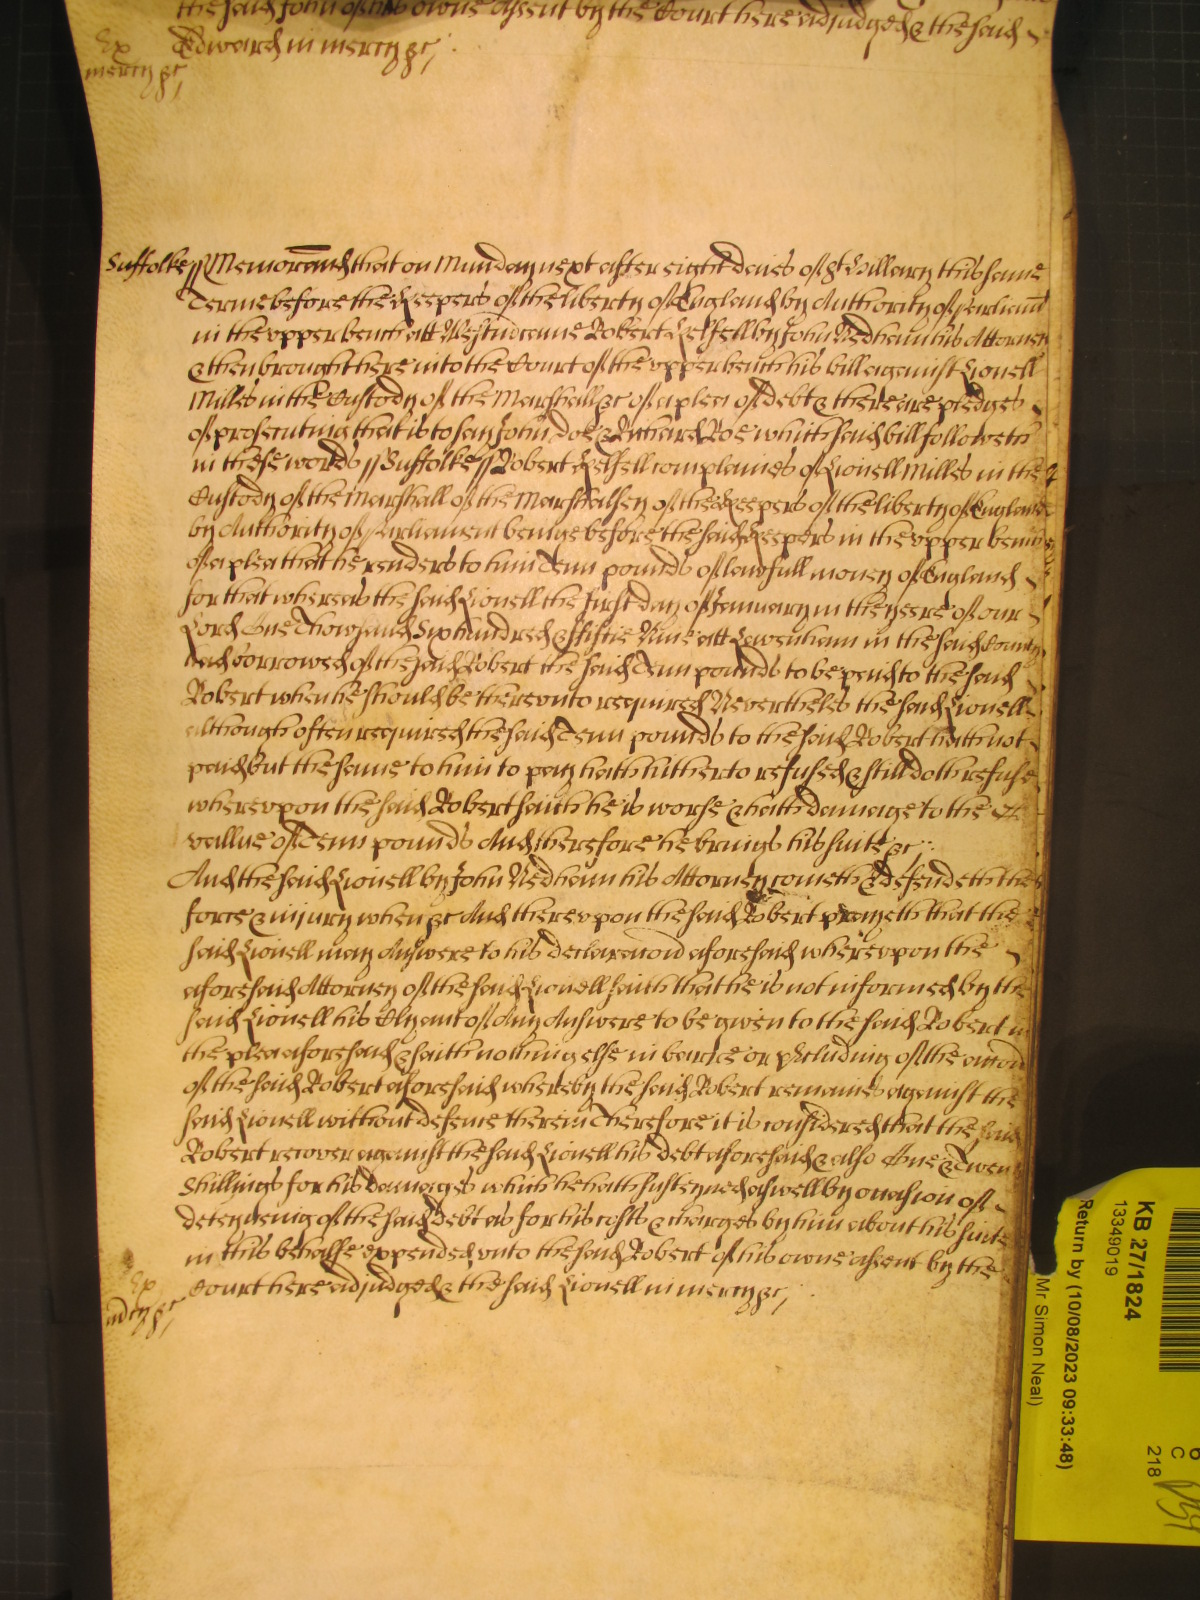 the said John of his owne assent by the Court here adjudged & the said
Edward in mercy &c
Ex
mercy &c
Suffolke // Memorand that on Munday next after eight daies of St Hillary this same
Terme before the Keepers of the liberty of England by Authority of Parliamt
in the upper bench att Westm came Robert Kelsell by John Nedham his Attorney
& then brought here into the Court of the upper bench his bill against Lionell
Milles in the Custody of the Marshall &c of a plea of debt & there are pledges
of prosecuting that is to say John Doe & Richard Roe which said bill followeth
in these words // Suffolke // Robert Kelsell complaines of Lionell Milles in the
Custody of the Marshall of the Marshalsey of the Keepers of the liberty of England
by Authority of Parliament beinge before the said Keepers in the upper bench
of a plea that he renders to him Tenn pounds of lawfull money of England
for that whereas the said Lionell the first day of January in the yeere of our
Lord One Thowsand Six hundred & fiftie Nine att Lavenham in the said County
had borrowed of the said Robert the said Tenn pounds to be paid to the said
Robert when he should be therevnto required Nevertheles the said Lionell
although often required the said Tenn pounds to the said Robert hath not
paid but the same to him to pay hath hitherto refused & still doth refuse
wherevpon the said Robert saith he is worse & hath damage to the
vallue of Tenn pounds And therefore he brings his suite &c
And the said Lionell by John Nedham his Attorney cometh & defendeth the
force & injury when &c And therevpon the said Robert prayeth that the
said Lionell may Answere to his declaracion aforesaid wherevpon the
aforesaid Attorney of the said Lionell saith that he is not informed by the
said Lionell his Clyant of Any Answere to be given to the said Robert in
the plea aforesaid & saith nothing else in barre or pcluding of the accion
of the said Robert aforesaid whereby the said Robert remaines against the
said Lionell without defence therein Therefore it is considered that the said
Robert recover against the said Lionell his debt aforesaid & also One & Twenty
Shillings for his damages which he hath susteyned aswell by occasion of
deteyneing of the said debt as for his costs & charges by him about his suite
in this behalfe expended vnto the said Robert of his owne assent by the
Court here adjudged & the said Lionell in mercy &c
Ex
mercy &c
KB 27/1824
13349019
Return by (10/08/2023 09:33:48)
Mr Simon Neal)
6
C
218